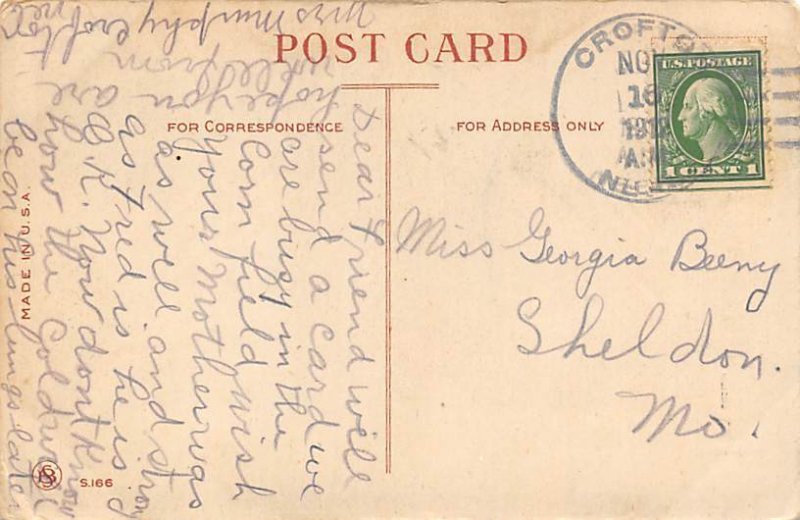 POST CARD
FOR CORRESPONDENCE
FOR ADDRESS ONLY
CROFTON
NO
16
191
U.S. POSTAGE
1 CENT 1
Miss Georgia Beeny
Sheldon.
Mo.
Dear Friend will
send a card we
are busy in the
corn field wish
your Mother was
as well and strong
as Fred is he is
O.K. Now dont know
how the cold
be on his lungs later
hope you are
well from
Murphy Crofton
Neb
MADE IN U.S.A.
S.166